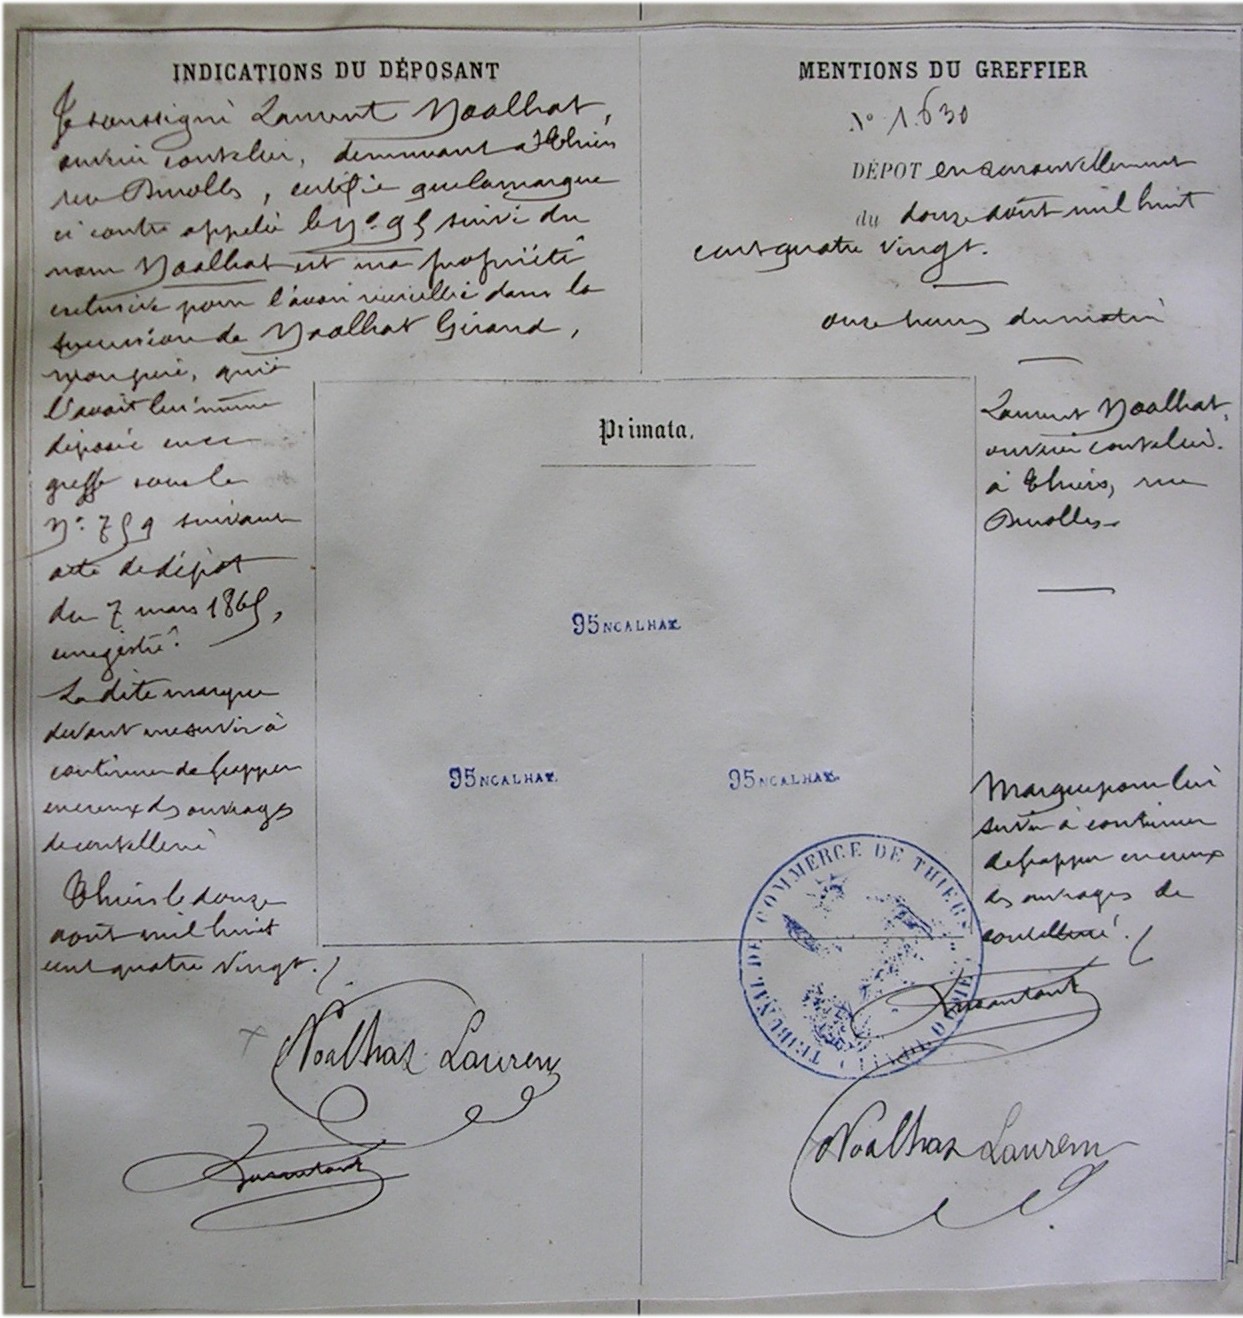 INDICATIONS DU DÉPOSANT
Je soussigné Laurent Noalhat,
ouvrier coutelier, demeurant à Thiers
rue Durolles, certifie que la marque
ci contre appelée le No. 95 suivi du
nom Noalhat est ma propriété
exclusive pour l'avoir recueillie dans la
succession de Noalhat Girard,
mon père, qui
l'avait lui même
déposée en ce
greffe sous le
No. 759 suivant
acte de dépôt
du 7 mars 1865,
enregistré.
La dite marque
devant me servir à
continuer de frapper
en creux des ouvrages
de coutellerie
Thiers le douze
août mil huit
cent quatre vingt.
Noalhat Laurent
MENTIONS DU GREFFIER
No 1.630
DÉPOT en renouvellement
du douze août mil huit
cent quatre vingt.
onze heures du matin
Laurent Noalhat,
ouvrier coutelier.
à Thiers, rue
Durolles.
Marque pour lui
servir à continuer
de frapper en creux
des ouvrages de
coutellerie.
Noalhat Laurent
Primata.
95 NCALHAT.
95 NCALHAT.
95 NCALHAT.
TRIBUNAL DE COMMERCE DE THIERS